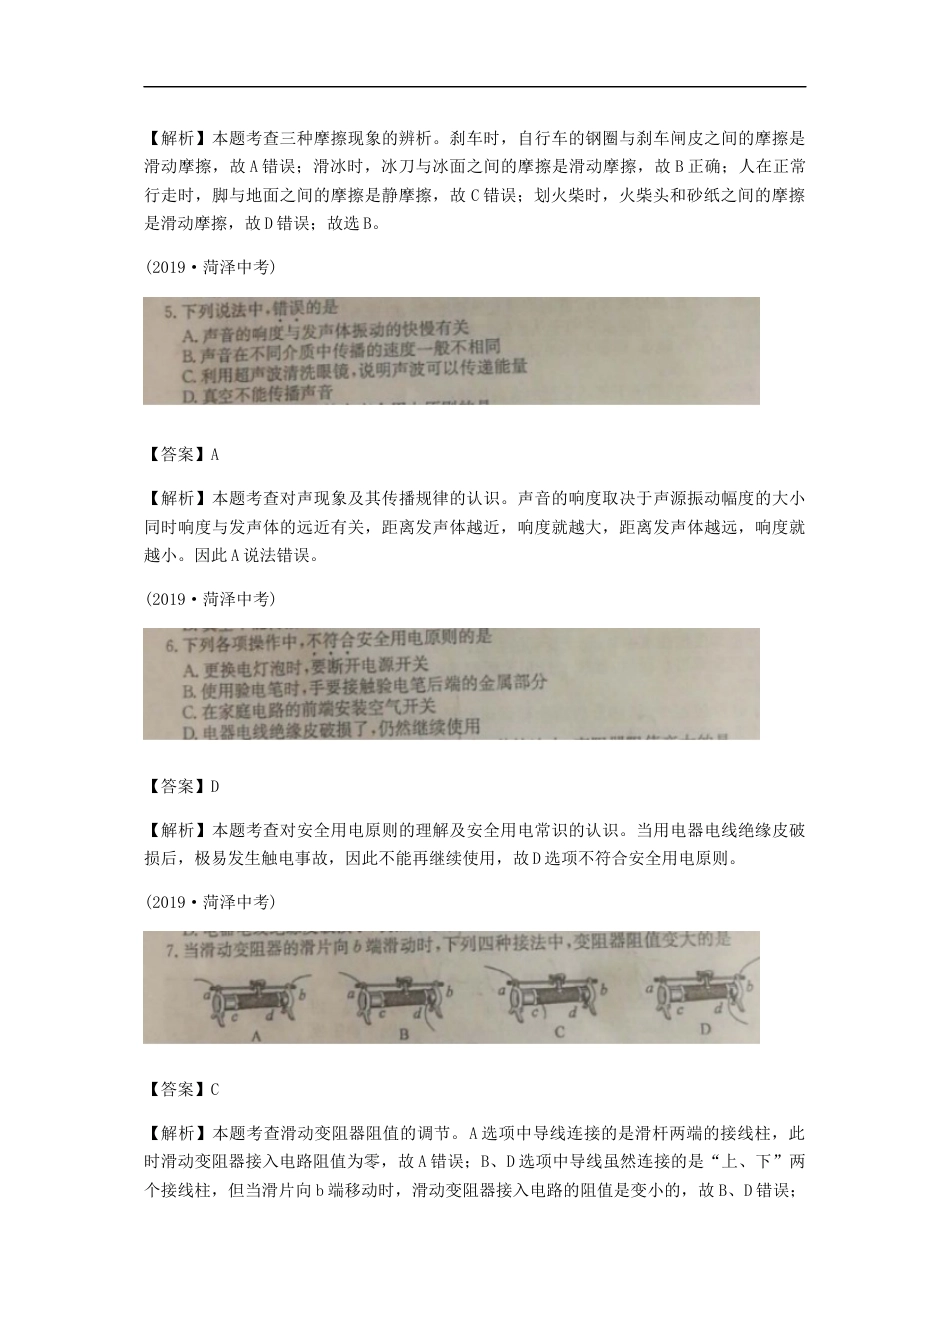 【解析】本题考查三种摩擦现象的辨析。刹车时，自行车的钢圈与刹车闸皮之间的摩擦是
滑动摩擦，故A错误；滑冰时，冰刀与冰面之间的摩擦是滑动摩擦，故B正确；人在正常
行走时，脚与地面之间的摩擦是静摩擦，故C错误；划火柴时，火柴头和砂纸之间的摩擦
是滑动摩擦，故D错误；故选B。
(2019·菏泽中考)
5.下列说法中,错误的是
A.声音的响度与发声体振动的快慢有关
B.声音在不同介质中传播的速度一般不相同
C.利用超声波清洗眼镜,说明声波可以传递能量
D.真空不能传播声音
【答案】A
【解析】本题考查对声现象及其传播规律的认识。声音的响度取决于声源振动幅度的大小
同时响度与发声体的远近有关，距离发声体越近，响度就越大，距离发声体越远，响度就
越小。因此A说法错误。
(2019·菏泽中考)
6.下列各项操作中,不符合安全用电原则的是
A.更换电灯泡时,要断开电源开关
B.使用验电笔时,手要接触验电笔后端的金属部分
C.在家庭电路的前端安装空气开关
D.电器电线绝缘皮破损了,仍然继续使用
【答案】D
【解析】本题考查对安全用电原则的理解及安全用电常识的认识。当用电器电线绝缘皮破
损后，极易发生触电事故，因此不能再继续使用，故D选项不符合安全用电原则。
(2019·菏泽中考)
7.当滑动变阻器的滑片向b端滑动时,下列四种接法中,变阻器阻值变大的是
a b a b a b a b
c d c d c d c d
A B C D
【答案】C
【解析】本题考查滑动变阻器阻值的调节。A选项中导线连接的是滑杆两端的接线柱，此
时滑动变阻器接入电路阻值为零，故A错误；B、D选项中导线虽然连接的是“上、下”两
个接线柱，但当滑片向b端移动时，滑动变阻器接入电路的阻值是变小的，故B、D错误；